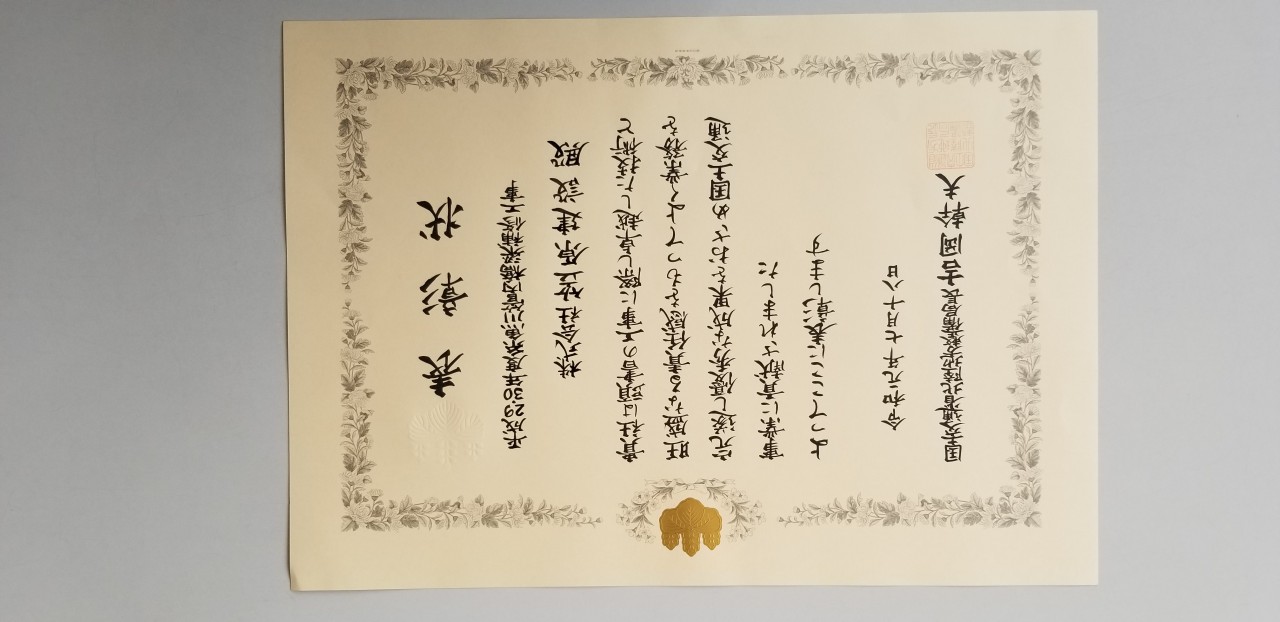 表彰状
平成29.30年度糸魚川管内橋梁補修工事
株式会社笠原建設殿
貴社は頭書の工事に際し卓越した技術と
旺盛なる責任感をもってよく業務を
完遂し優秀な成果をおさめ国土交通
事業に貢献されました
よってここに表彰します
令和元年七月十八日
国土交通省北陸地方整備局長吉岡幹夫